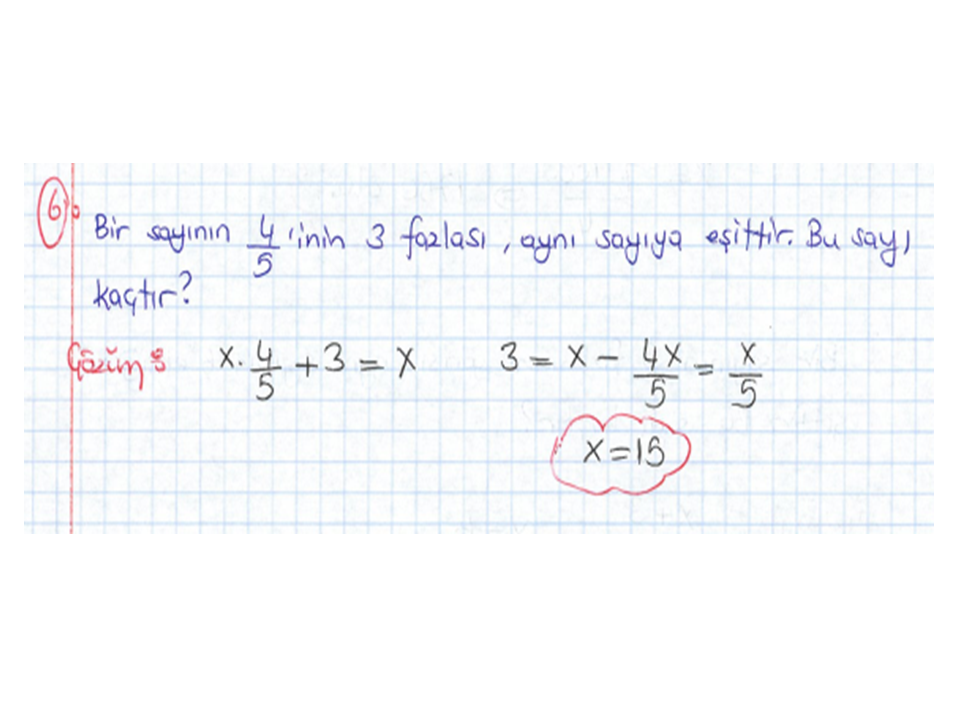 6. Bir sayının 4/5'inin 3 fazlası, aynı sayıya eşittir. Bu sayı
kaçtır?
Çözüm: x · 4/5 + 3 = x 3 = x - 4x/5 = x/5
x = 15